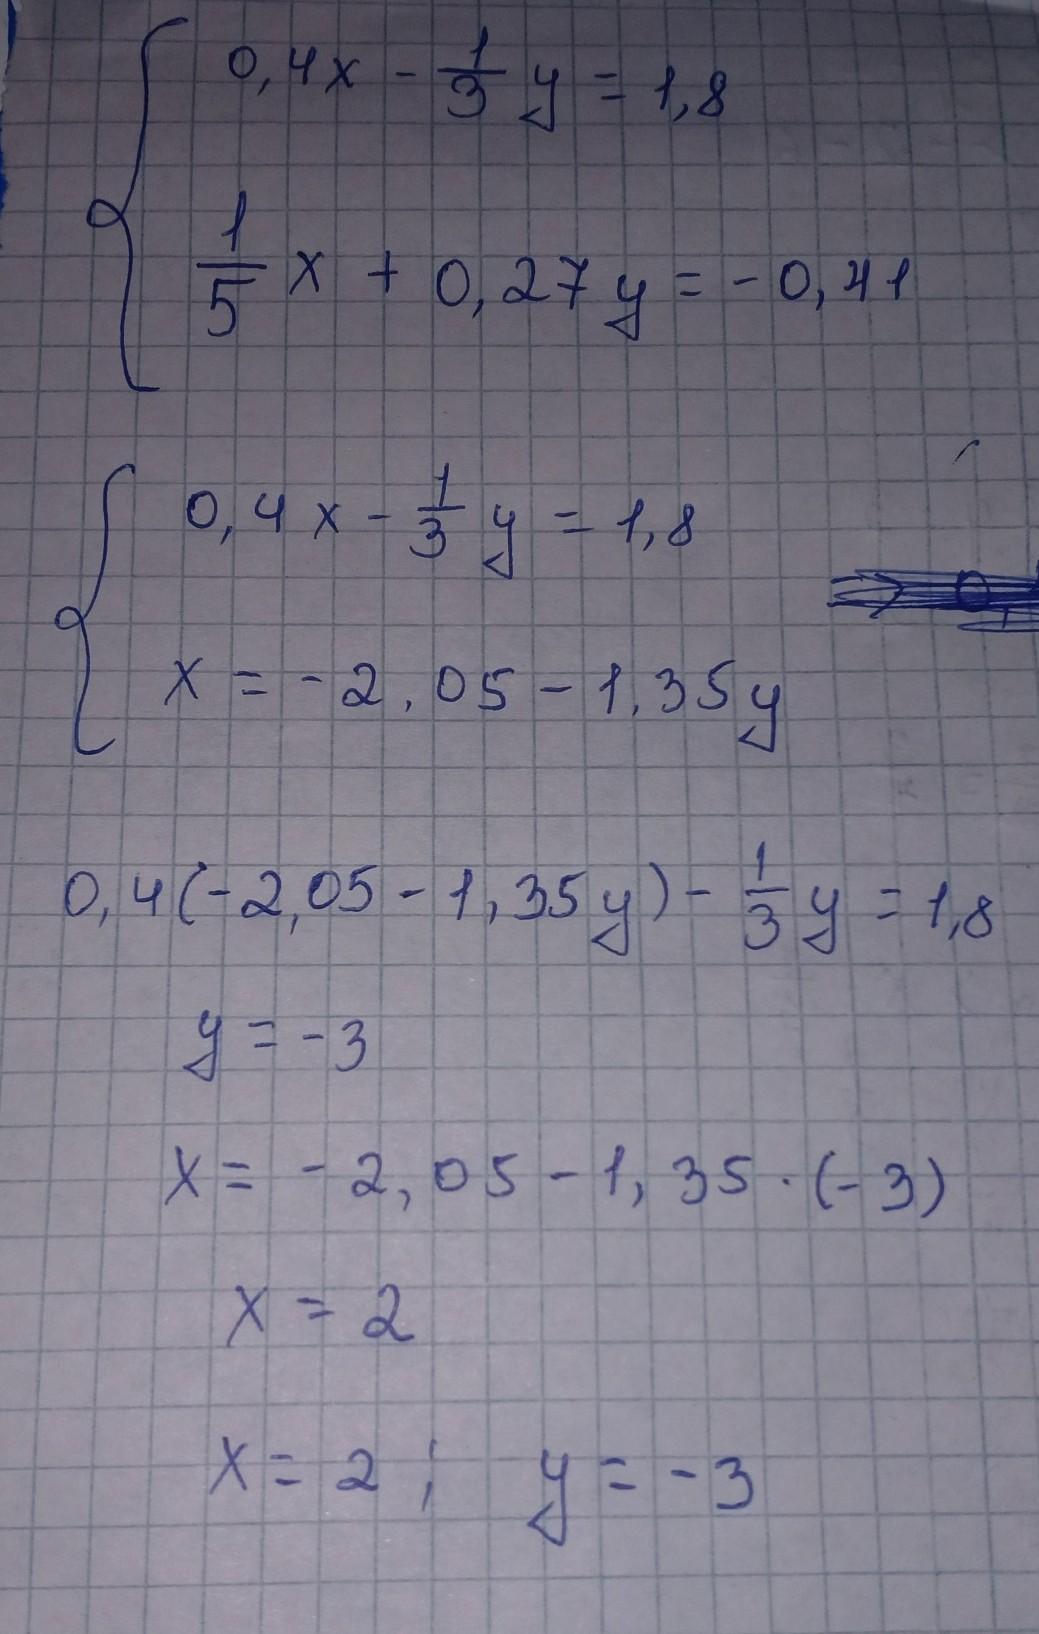 0,4x - 1/3 y = 1,8
1/5 x + 0,27y = -0,41
0,4x - 1/3 y = 1,8
x = -2,05 - 1,35y
0,4(-2,05 - 1,35y) - 1/3 y = 1,8
y = -3
x = -2,05 - 1,35 · (-3)
x = 2
x = 2 ; y = -3